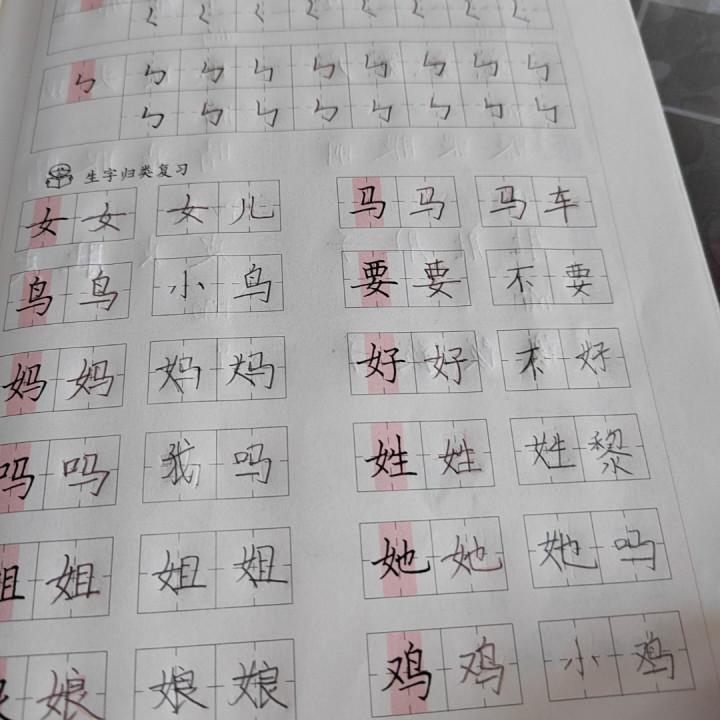 く く く く く く く く
ㄣ ㄣ ㄣ ㄣ ㄣ ㄣ ㄣ ㄣ ㄣ
ㄣ ㄣ ㄣ ㄣ ㄣ ㄣ ㄣ ㄣ
生字归类复习
女 女 女 儿 马 马 马 车
鸟 鸟 小 鸟 要 要 不 要
妈 妈 妈 妈 好 好 不 好
吗 吗 我 吗 姓 姓 姓 黎
姐 姐 姐 姐 她 她 她 吗
娘 娘 娘 娘 鸡 鸡 小 鸡